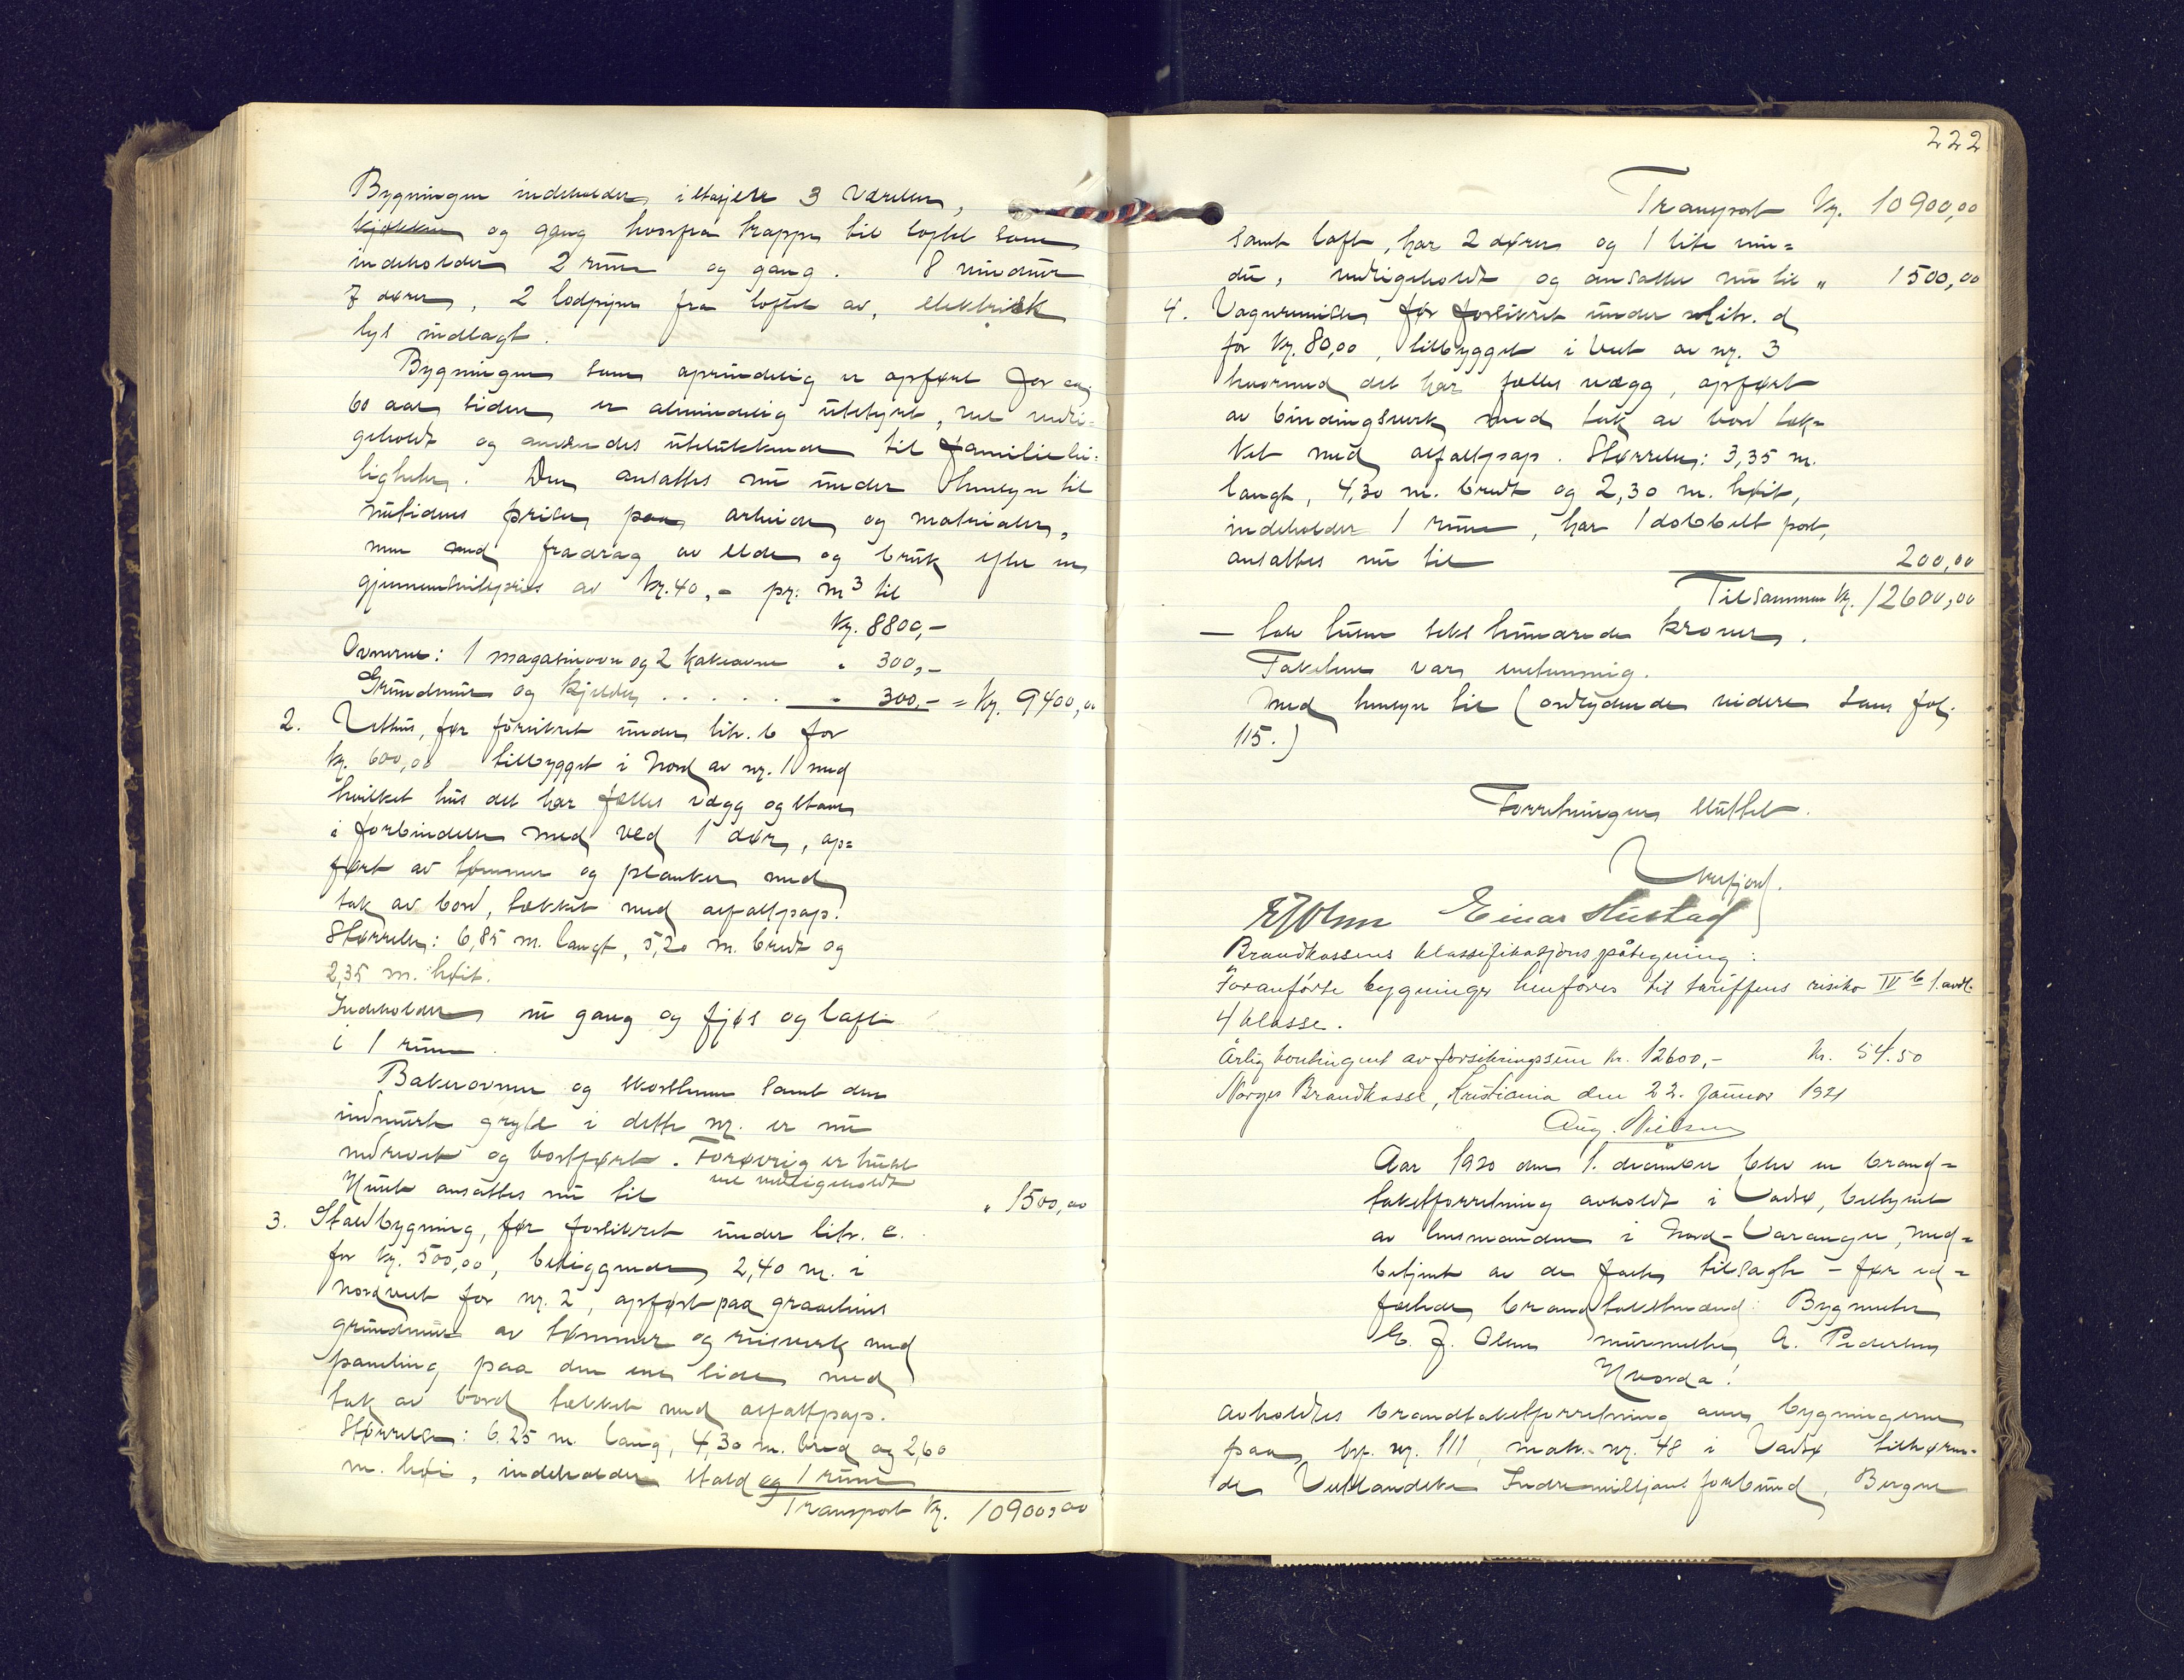 Bygningen indeholder i 1 etasje 3 værelser,
kjøkken og gang hvorfra trappe til loftet som
indeholder 2 rum og gang. 8 vinduer
7 dører, 2 lodpiper fra loftet av, elektrisk
lys indlagt.
Bygningen som oprindelig er opført for ca.
60 aar siden er almindelig utstyrt, vel vedli-
geholdt og anvendes utelukkende til familielei-
ligheter. Den ansattes nu under hensyn til
nutidens priser paa arbeide og materialer,
men med fradrag av elde og bruk efter en
gjennemsnitspris av kr. 40,- pr. m³ til
kr. 8800,-
Ovnene: 1 magasinovn og 2 kakovne " 300,-
Grundmur og kjelder . . . . . " 300,- = kr. 9400,00
2. Uthus, før forsikret under litr. b for
kr. 600,00 tilbygget i Nord av nr. 1 med
hvilket hus det har fælles vægg og staar
i forbindelse med ved 1 dør, op-
ført av tømmer og planker med
tak av bord, tækket med asfaltpap.
Størrelse: 6,85 m. langt, 5,20 m. bredt og
2,35 m. høit.
Indeholder nu gang og fjøs og loft
i 1 rum.
Bakerovnen og skorstenen samt den
indmurte gryte i dette nr. er nu
nedrevet og bortført. Forøvrig er huset
vel vedligeholdt
Huset ansattes nu til " 1500,00
3. Staldbygning, før forsikret under litr. c.
for kr. 500,00, beliggende 2,40 m. i
nordvest for nr. 2, opført paa graastens
grundmur av tømmer og reisverk med
paneling paa den ene side med
tak av bord tækket med asfaltpap.
Størrelse: 6.25 m. lang, 4,30 m. bred og 2,60
m. høi, indeholder stald og 1 rum
Transport kr. 10900,00
222
Transport kr. 10900,00
samt loft, har 2 dører og 1 lite vin-
du, vedligeholdt og ansattes nu til " 1500,00
4. Vognremisse før forsikret under litr. d
for kr. 80,00, tilbygget i vest av nr. 3
hvormed det har fælles vægg, opført
av bindingsverk med tak av bord tæk-
ket med asfaltpap. Størrelse: 3,35 m.
langt, 4,30 m. bredt og 2,30 m. høit,
indeholder 1 rum, har 1 dobbelt port,
ansattes nu til 200,00
Tilsammen kr. 12600,00
— tolv tusen seks hundrede kroner.
Taksten var enstemmig.
Med hensyn til (ordlydende videre som fol.
115.)
Forretningen sluttet.
E J Olsen Einar Hustad
Brandkassens klassifikasjons påtegning:
Foranførte bygninger henføres til tariffens risiko IV b 1. avd.
4 klasse.
Årlig kontingent av forsikringssum kr. 12600,- kr. 54.50
Norges Brandkasse, Kristiania den 22. januar 1921
Aug. Nielsen
Aar 1920 den 1. december blev en brand-
takstforretning avholdt i Vadsø, bestyret
av lensmanden i Nord-Varanger, med-
betjent av de faste tilsagte - før ed-
fæstede brandtakstmænd: Bygmester
E. J. Olsen murmester A. Pedersen
Hvorda!
avholdtes brandtakstforretning over bygningerne
paa br. nr. 111, matr. nr. 48 i Vadsø tilhøren-
de Vestlandske Indremissjons forbund, Bergen